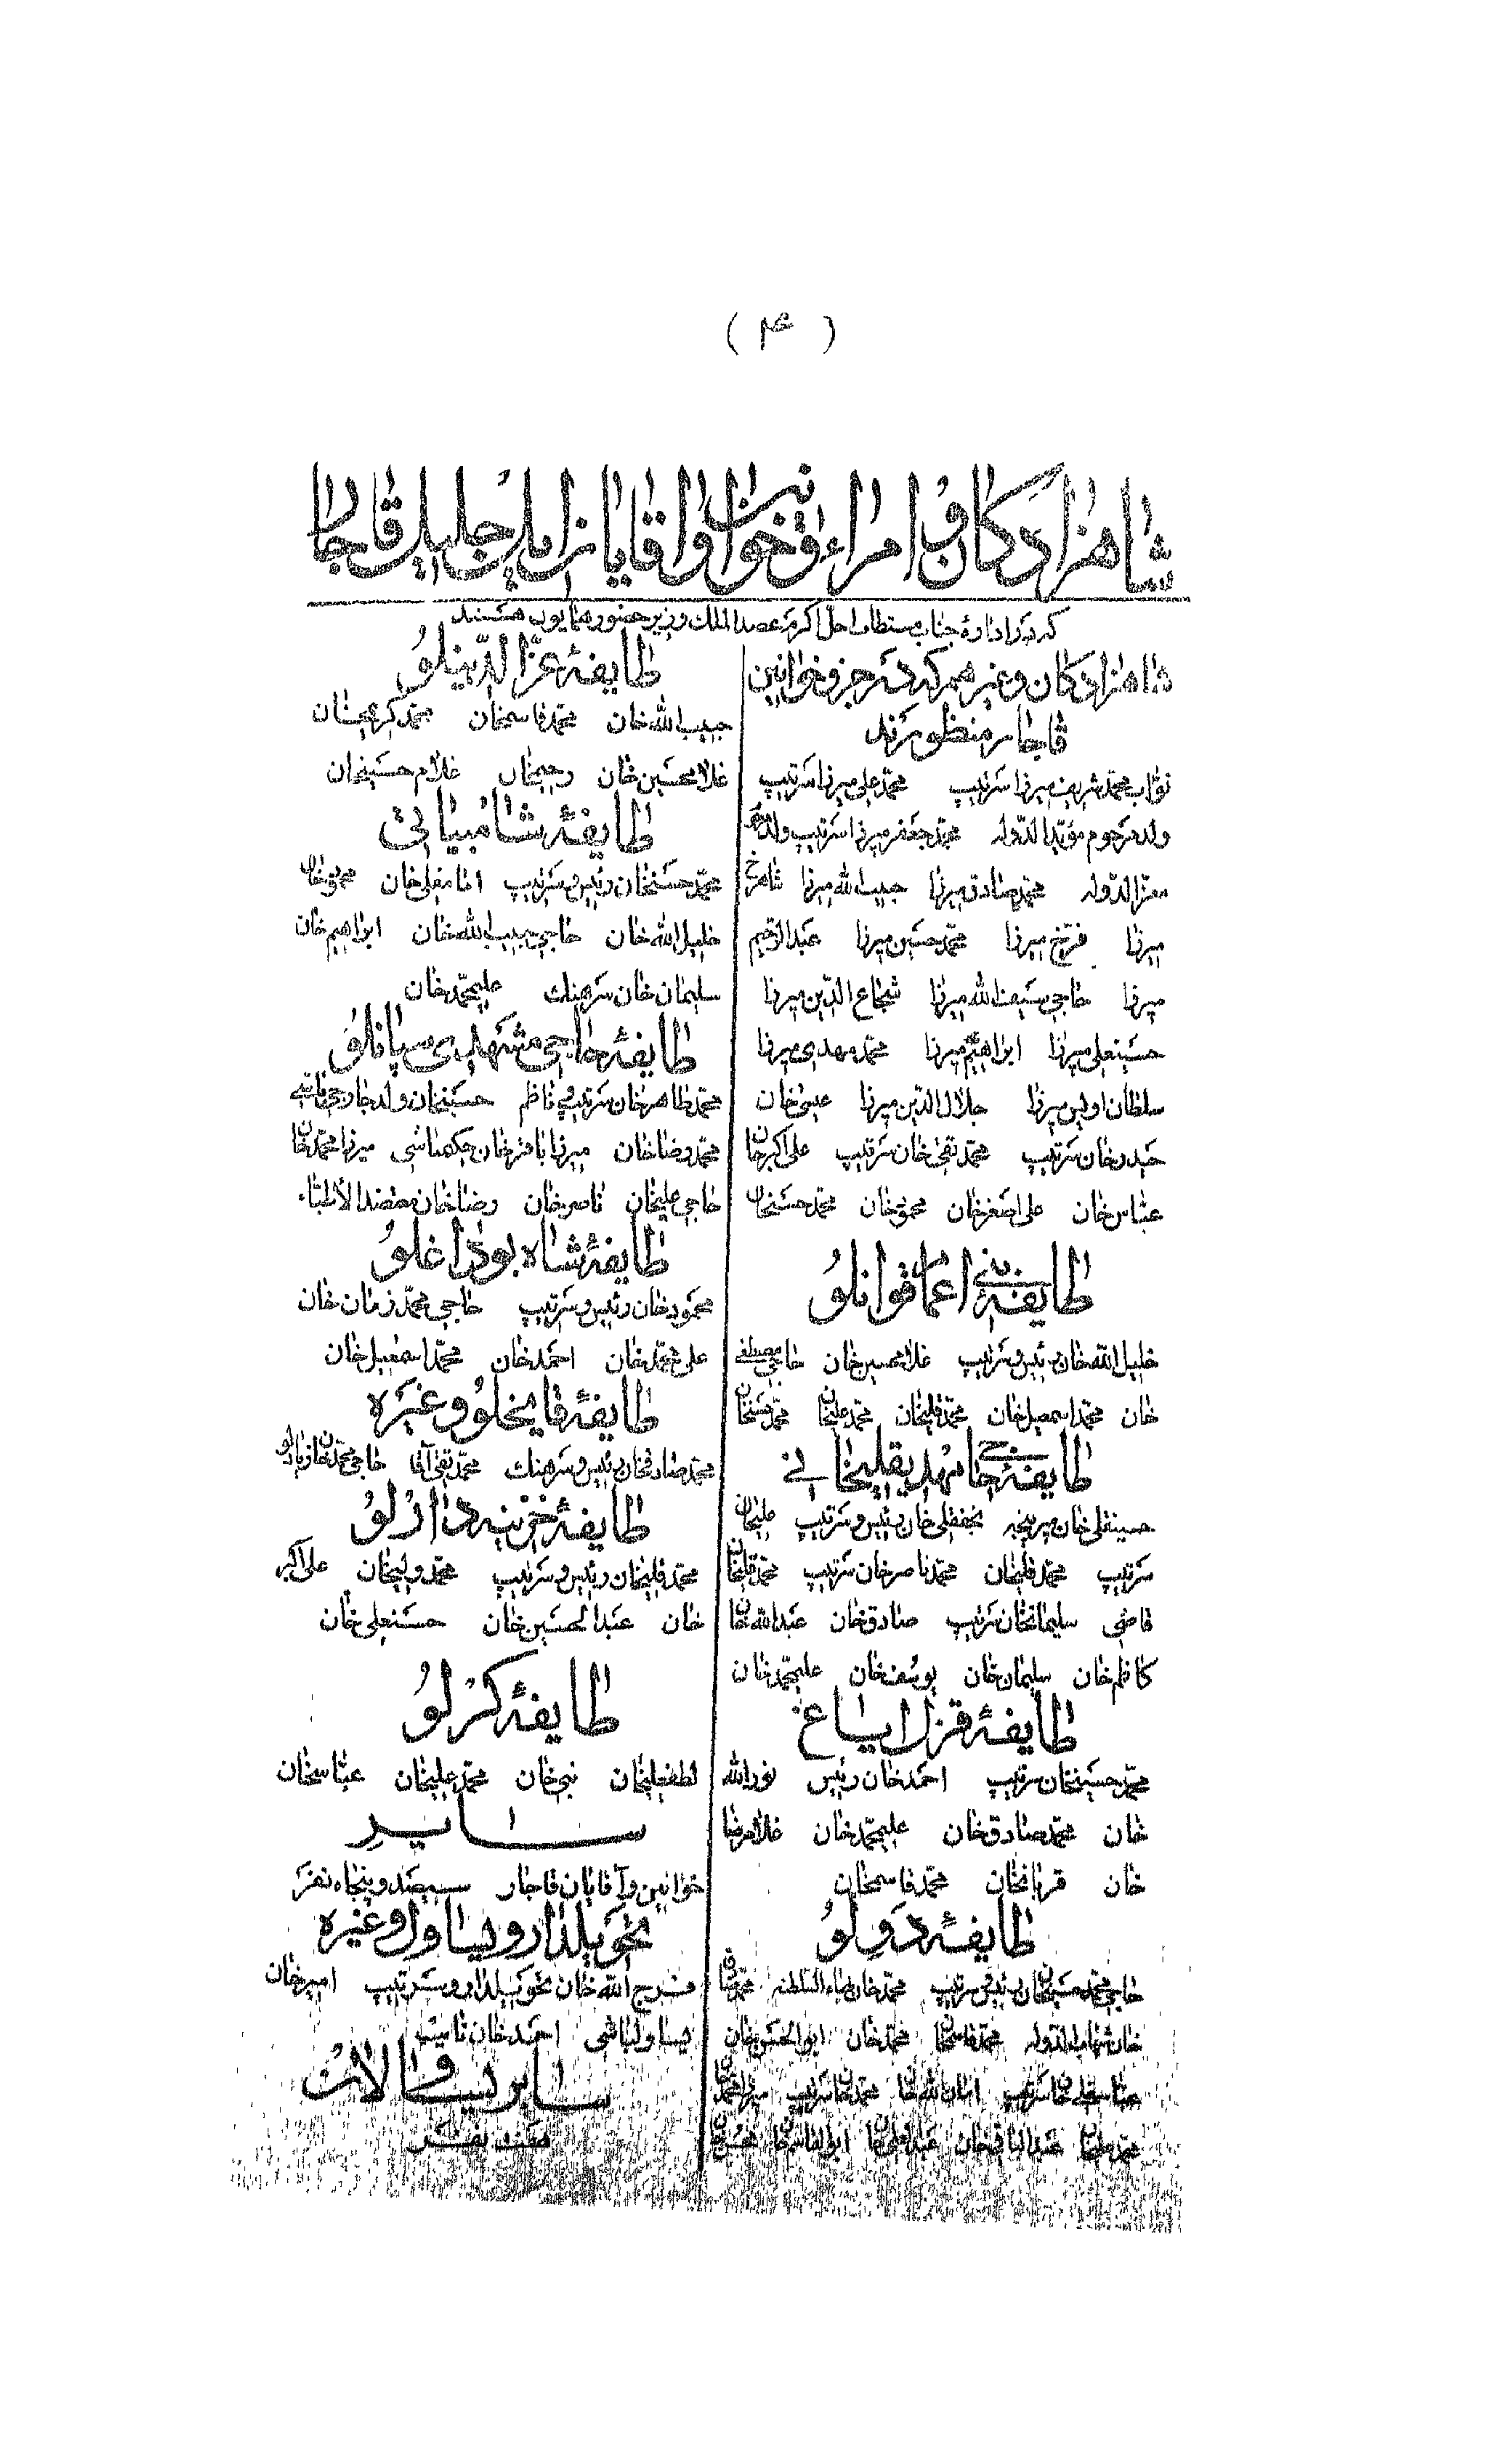 ( ۴ )
شاهزادکان و امراء و خوانین و اقایان ایل جلیل قاجار
که در ادارهٔ جناب مستطاب اجل اکرم عضد الملک وزیر حضور همایون هستند
شاهزادکان و غیرهم که در جزو خوانین
قاجار منظورند
نواب محمد شریف میرزا سرتیپ محمد علی میرزا سرتیپ
ولد مرحوم مؤید الدوله محمد جعفر میرزا سرتیپ ولد
معز الدوله محمد صادق میرزا حبیب الله میرزا شاهرخ
میرزا فرخ میرزا محمد حسین میرزا عبد الرحیم
میرزا حاجی سیف الله میرزا شجاع الدین میرزا
حسینعلی میرزا ابراهیم میرزا محمد مهدی میرزا
سلطان اویس میرزا جلال الدین میرزا عیسی خان
حیدر خان سرتیپ محمد تقی خان سرتیپ علی اکبر خان
عباس خان علی اصغر خان محمود خان محمد حسنخان
طایفهٔ قوانلو
خلیل الله خان رئیس و سرتیپ غلامحسین خان حاجی مصطفی
خان محمد اسمعیل خان محمد قلیخان محمد علیخان محمد حسنخان
طایفهٔ مهدیقلیخانی
حسینقلی خان میرپنجه نجفقلی خان رئیس و سرتیپ علیخان
سرتیپ محمد قلیخان محمد ناصر خان سرتیپ محمد قلیخان
قاضی سلیمانخان سرتیپ صادق خان عبد الله خان
کاظم خان سلیمان خان یوسف خان علیمحمد خان
طایفهٔ قزل ایاغ
محمد حسینخان سرتیپ احمد خان رئیس نور الله
خان محمد صادق خان علیمحمد خان غلامرضا
خان قربانخان محمد قاسمخان
طایفهٔ دولو
حاجی محمد حسینخان رئیس و سرتیپ محمد خان بهاء السلطنه
خان شهاب الدوله محمد قاسمخان محمد خان ابو الحسن خان
عباسقلی خان سرتیپ امان الله خان محمد خان سرتیپ
عبد الباقی خان عبد العلی خان ابو القاسم خان
طایفهٔ عز الدینلو
حبیب الله خان محمد قاسمخان محمد کریمخان
غلامحسین خان رحیمخان غلام حسینخان
طایفهٔ شامبیاتی
محمد حسنخان رئیس و سرتیپ امامقلی خان محمود خان
خلیل الله خان حاجی حبیب الله خان ابراهیم خان
سلیمان خان سرهنک علیمحمد خان
طایفهٔ حاجی مشهدی سپانلو
محمد طاهر خان سرتیپ حسینخان ولد
محمد رضا خان میرزا باقر خان حکیمباشی میرزا محمد خان
حاجی علیخان ناصر خان رضا خان معتضد الاطباء
طایفهٔ شاه بوداغلو
محمود خان رئیس و سرتیپ حاجی محمد زمان خان
علی محمد خان احمد خان محمد اسمعیل خان
طایفهٔ قایخلو و غیره
محمد صادقخان رئیس و سرهنک محمد تقی آقا حاجی محمد خان زیادلو
طایفهٔ خزینه دارلو
محمد قلیخان رئیس و سرتیپ محمد ولیخان علی اکبر
خان عبد الحسین خان حسنعلی خان
طایفهٔ کرلو
لطفعلیخان نبی خان محمد علیخان عباسخان
سایر
خوانین و آقایان قاجار سیصد و پنجاه نفر
تحویلدار و یساول و غیره
فرج الله خان تحویلدار و سرتیپ امیر خان
یساولباشی احمد خان نایب
سایر یساولان
هفت نفر